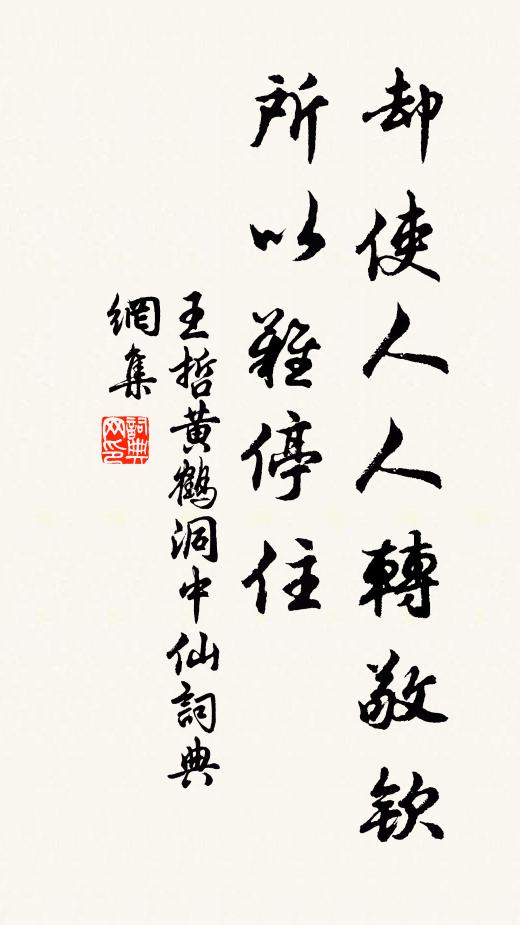 却使人人轉敬欽
所以難停住
王哲黄鶴洞中仙詞典
網集
詞典
网印